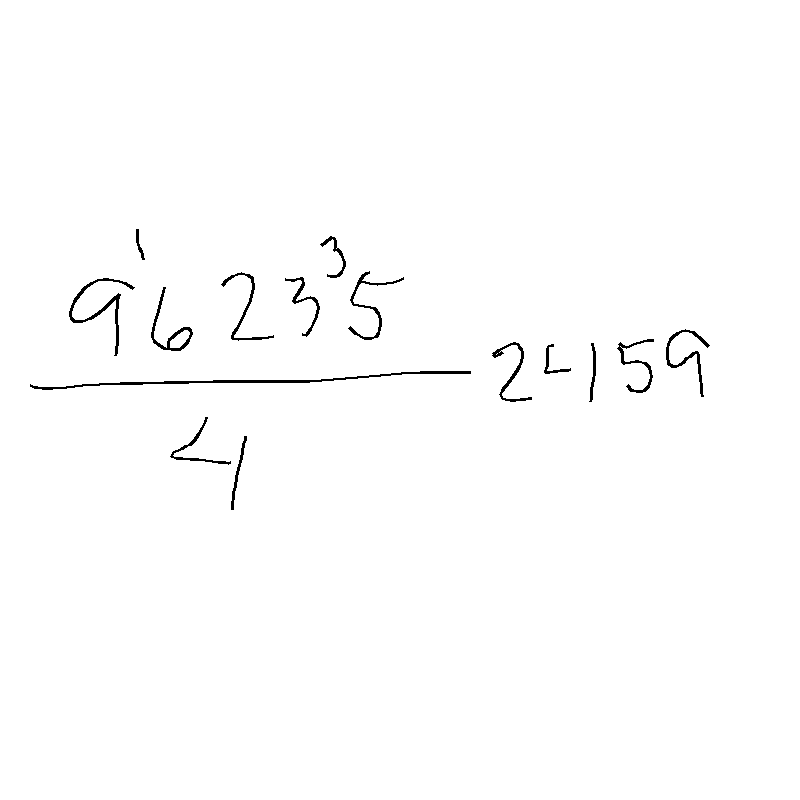 9¹623³5
4
2459